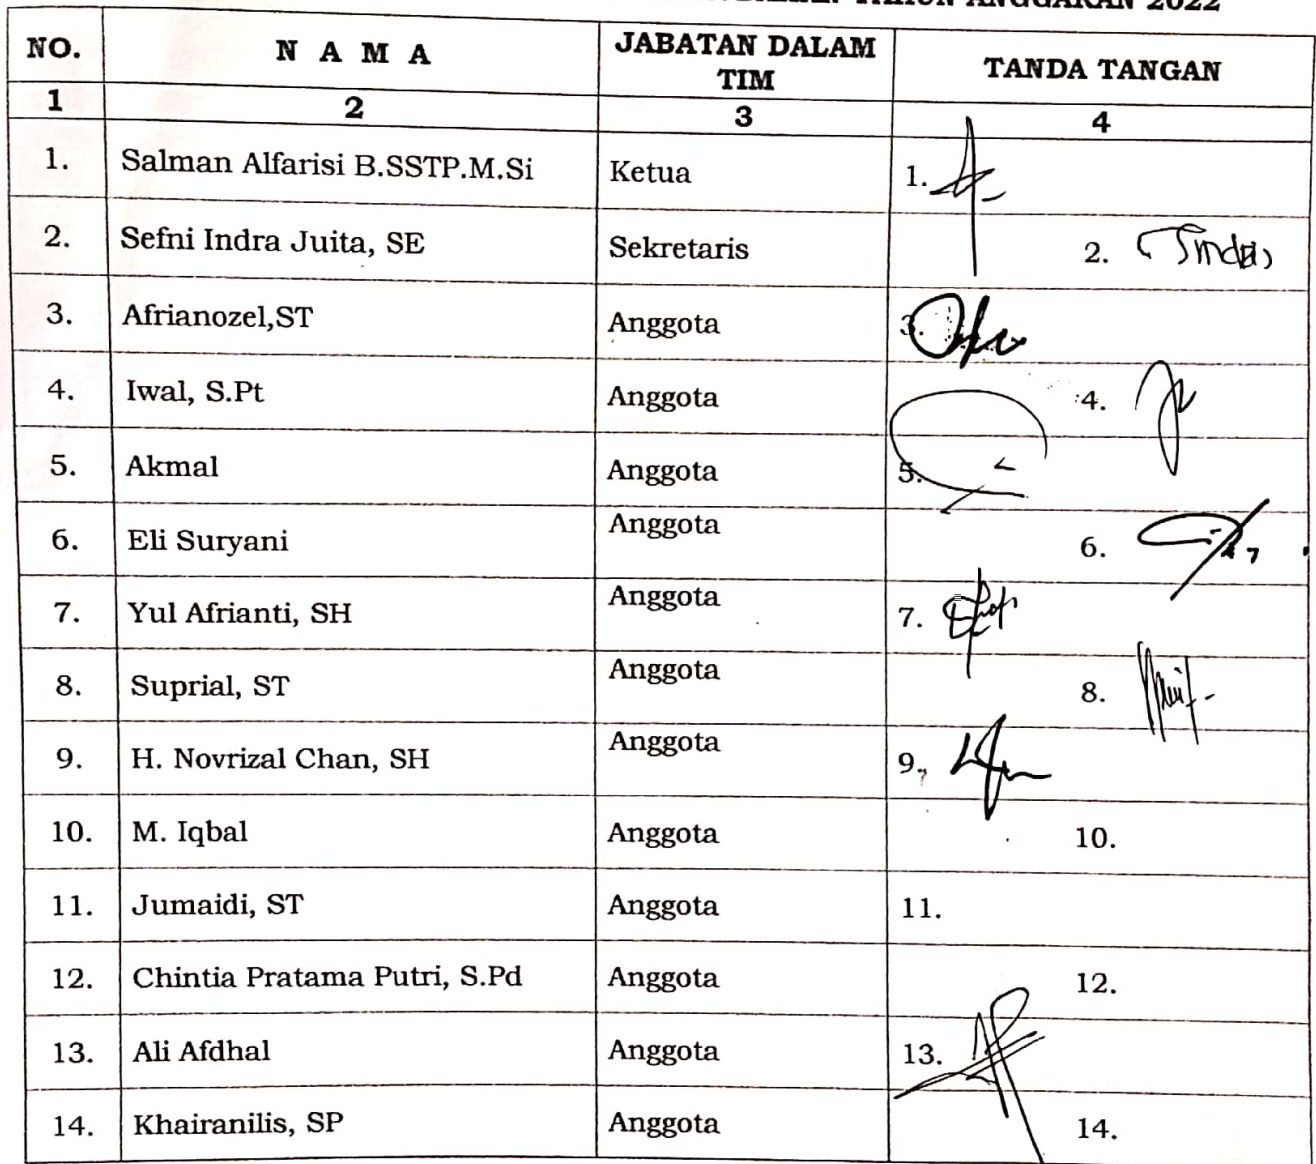 TAHUN ANGGARAN 2022
NO. N A M A JABATAN DALAM TIM TANDA TANGAN
1 2 3 4
1. Salman Alfarisi B.SSTP.M.Si Ketua 1.
2. Sefni Indra Juita, SE Sekretaris 2.
3. Afrianozel,ST Anggota 3.
4. Iwal, S.Pt Anggota 4.
5. Akmal Anggota 5.
6. Eli Suryani Anggota 6.
7. Yul Afrianti, SH Anggota 7.
8. Suprial, ST Anggota 8.
9. H. Novrizal Chan, SH Anggota 9.
10. M. Iqbal Anggota 10.
11. Jumaidi, ST Anggota 11.
12. Chintia Pratama Putri, S.Pd Anggota 12.
13. Ali Afdhal Anggota 13.
14. Khairanilis, SP Anggota 14.